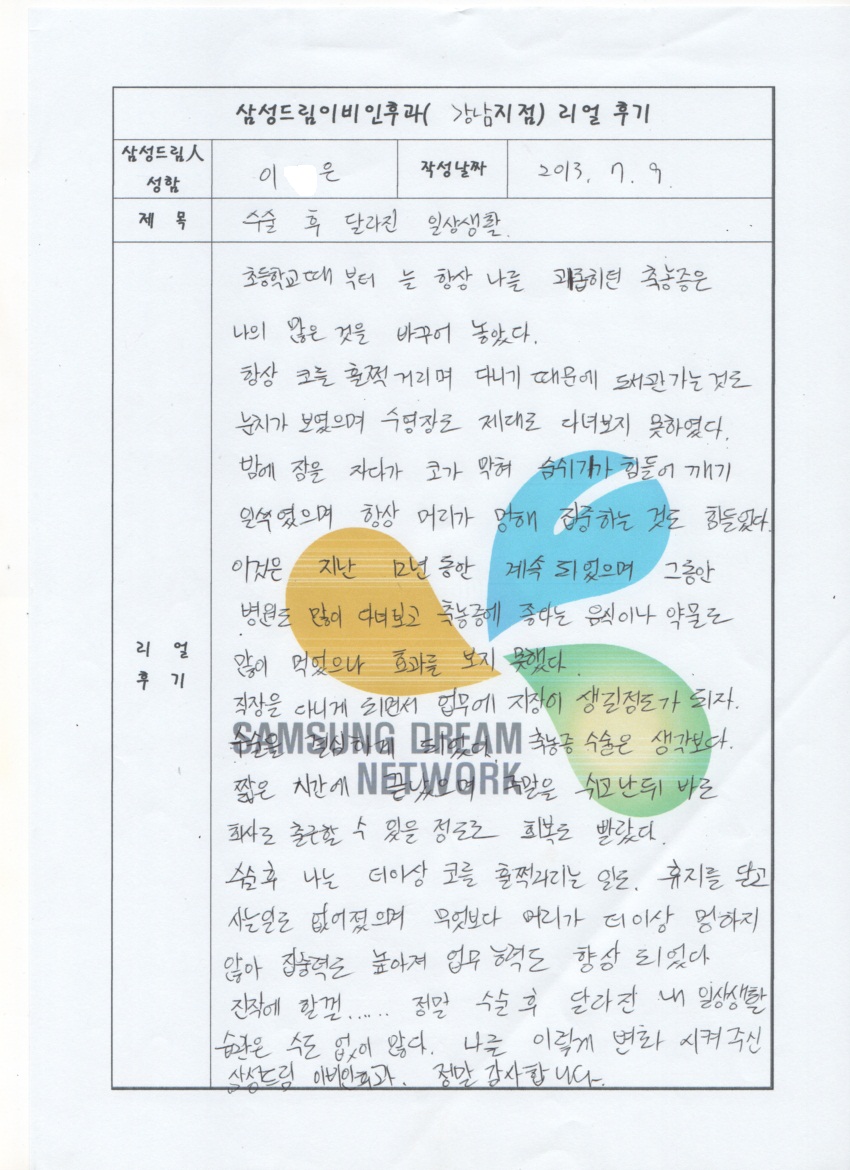 삼성드림이비인후과( 강남지점) 리얼 후기
삼성드림人 성함
이 은
작성날짜
2013. 7. 9.
제 목
수술 후 달라진 일상생활.
리 얼 후 기
초등학교때 부터 늘 항상 나를 괴롭히던 축농증은
나의 많은 것을 바꾸어 놓았다.
항상 코를 훌쩍 거리며 다니기 때문에 도서관가는것도
눈치가 보였으며 수영장도 제대로 다녀보지 못하였다.
밤에 잠을 자다가 코가 막혀 숨쉬기가 힘들어 깨기
일쑤였으며 항상 머리가 멍해 집중하는 것도 힘들었다.
이것은 지난 12년 동안 계속 되었으며 그동안
병원도 많이 다녀보고 축농증에 좋다는 음식이나 약물도
많이 먹었으나 효과를 보지 못했다.
직장을 다니게 되면서 업무에 지장이 생길정도가 되자.
수술을 결심하게 되었다. 축농증 수술은 생각보다.
짧은 시간에 끝났으며 주말을 쉬고난뒤 바로
회사로 출근할 수 있을 정도로 회복도 빨랐다.
수술후 나는 더이상 코를 훌쩍거리는 일도. 휴지를 달고
사는일도 없어졌으며 무엇보다 머리가 더이상 멍하지
않아 집중력도 높아져 업무 능력도 향상 되었다
진작에 할껄...... 정말 수술 후 달라진 내 일상생활
습관은 수도 없이 많다. 나를 이렇게 변화 시켜주신
삼성드림 이비인후과. 정말 감사합니다.
SAMSUNG DREAM
NETWORK